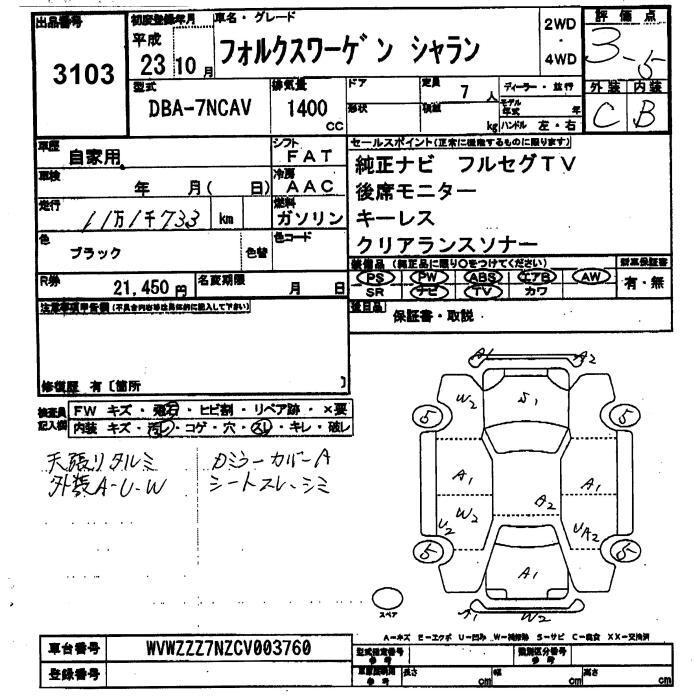 出品番号 3103
初度登録年月 平成 23年 10月
車名・グレード フォルクスワーゲン シャラン
2WD・4WD
評価点 3-5
外装 C 内装 B
型式 DBA-7NCAV
排気量 1400 CC
ドア 形状
定員 7 人
積載 kg
ディーラー・並行
モデル年式 年
ハンドル 左・右
車歴 自家用
シフト FAT
車検 年 月( 日)
冷房 AAC
走行 11万1千733 km
燃料 ガソリン
色 ブラック
色替
色コード
R券 21,450 円
名変期限 月 日
セールスポイント(正常に機能するものに限ります)
純正ナビ フルセグTV
後席モニター
キーレス
クリアランスソナー
装備品 (純正品に限り○をつけてください)
PS PW ABS エアB AW
SR ナビ TV カワ
新車保証書 有・無
後日品 保証書・取説
注意事項申告欄 (不具合内容等は具体的に記入して下さい)
修復歴 有〔箇所 〕
検査員記入欄
FW キズ・飛石・ヒビ割・リペア跡・×要
内装 キズ・汚レ・コゲ・穴・スレ・キレ・破レ
天張リタルミ
外装A-U-W
カミラーカバーA
シートスレ、シミ
A1 A2
W2 S1
5 5
A1 A1
A2
U2 W2 UA2
5 5
A1
A1 W2
スペア
A-キズ E-エクボ U-凹み W-補修跡 S-サビ C-腐食 XX-交換済
車台番号 WVWZZZ7NZCV003760
登録番号
型式指定番号 参考
類別区分番号 参考
車庫証明用 参考
長さ cm 幅 cm 高さ cm